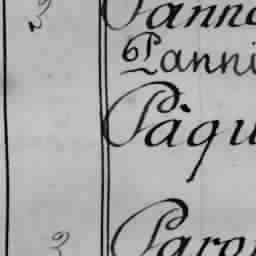 3 Panno
6 Panni
Pàqu
3 Paro